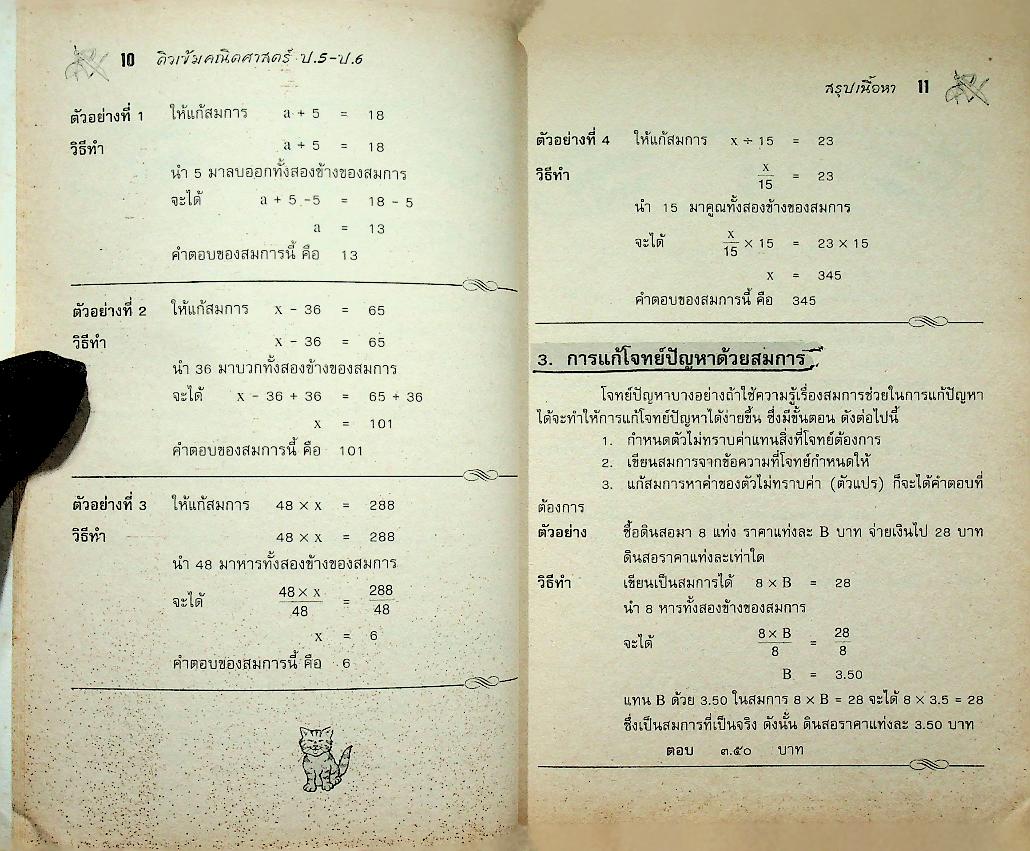 10 ติวเข้มคณิตศาสตร์ ป.5-ป.6
ตัวอย่างที่ 1 ให้แก้สมการ a + 5 = 18
วิธีทำ a + 5 = 18
นำ 5 มาลบออกทั้งสองข้างของสมการ
จะได้ a + 5 -5 = 18 - 5
a = 13
คำตอบของสมการนี้ คือ 13
ตัวอย่างที่ 2 ให้แก้สมการ x - 36 = 65
วิธีทำ x - 36 = 65
นำ 36 มาบวกทั้งสองข้างของสมการ
จะได้ x - 36 + 36 = 65 + 36
x = 101
คำตอบของสมการนี้ คือ 101
ตัวอย่างที่ 3 ให้แก้สมการ 48 × x = 288
วิธีทำ 48 × x = 288
นำ 48 มาหารทั้งสองข้างของสมการ
จะได้ 48 × x / 48 = 288 / 48
x = 6
คำตอบของสมการนี้ คือ 6
สรุปเนื้อหา 11
ตัวอย่างที่ 4 ให้แก้สมการ x ÷ 15 = 23
วิธีทำ x / 15 = 23
นำ 15 มาคูณทั้งสองข้างของสมการ
จะได้ x / 15 × 15 = 23 × 15
x = 345
คำตอบของสมการนี้ คือ 345
3. การแก้โจทย์ปัญหาด้วยสมการ
โจทย์ปัญหาบางอย่างถ้าใช้ความรู้เรื่องสมการช่วยในการแก้ปัญหา
ได้จะทำให้การแก้โจทย์ปัญหาได้ง่ายขึ้น ซึ่งมีขั้นตอน ดังต่อไปนี้
1. กำหนดตัวไม่ทราบค่าแทนสิ่งที่โจทย์ต้องการ
2. เขียนสมการจากข้อความที่โจทย์กำหนดให้
3. แก้สมการหาค่าของตัวไม่ทราบค่า (ตัวแปร) ก็จะได้คำตอบที่
ต้องการ
ตัวอย่าง ซื้อดินสอมา 8 แท่ง ราคาแท่งละ B บาท จ่ายเงินไป 28 บาท
ดินสอราคาแท่งละเท่าใด
วิธีทำ เขียนเป็นสมการได้ 8 × B = 28
นำ 8 หารทั้งสองข้างของสมการ
จะได้ 8 × B / 8 = 28 / 8
B = 3.50
แทน B ด้วย 3.50 ในสมการ 8 × B = 28 จะได้ 8 × 3.5 = 28
ซึ่งเป็นสมการที่เป็นจริง ดังนั้น ดินสอราคาแท่งละ 3.50 บาท
ตอบ ๓.๕๐ บาท